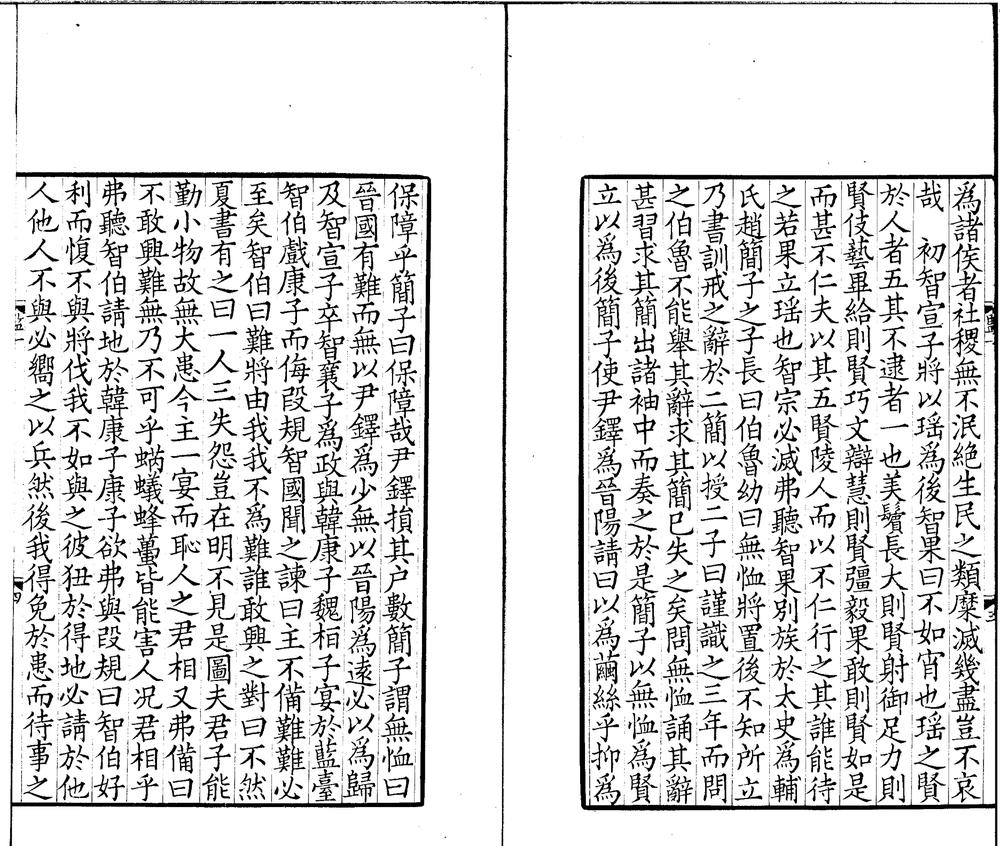 為諸侯者社稷無不泯絶生民之類糜滅幾盡豈不哀
哉　初智宣子將以瑶為後智果曰不如宵也瑶之賢
於人者五其不逮者一也美鬢長大則賢射御足力則
賢伎藝畢給則賢巧文辯慧則賢彊毅果敢則賢如是
而甚不仁夫以其五賢陵人而以不仁行之其誰能待
之若果立瑶也智宗必滅弗聽智果别族於太史為輔
氏趙簡子之子長曰伯魯幼曰無恤將置後不知所立
乃書訓戒之辭於二簡以授二子曰謹識之三年而問
之伯魯不能舉其辭求其簡已失之矣問無恤誦其辭
甚習求其簡出諸袖中而奏之於是簡子以無恤為賢
立以為後簡子使尹鐸為晉陽請曰以為繭絲乎抑為
保障乎簡子曰保障哉尹鐸損其户數簡子謂無恤曰
晉國有難而無以尹鐸為少無以晉陽為遠必以為歸
及智宣子卒智襄子為政與韓康子魏桓子宴於藍臺
智伯戲康子而侮段規智國聞之諫曰主不備難難必
至矣智伯曰難將由我我不為難誰敢興之對曰不然
夏書有之曰一人三失怨豈在明不見是圖夫君子能
勤小物故無大患今主一宴而恥人之君相又弗備曰
不敢興難無乃不可乎蜹蟻蜂蠆皆能害人况君相乎
弗聽智伯請地於韓康子康子欲弗與段規曰智伯好
利而愎不與將伐我不如與之彼狃於得地必請於他
人他人不與必嚮之以兵然後我得免於患而待事之